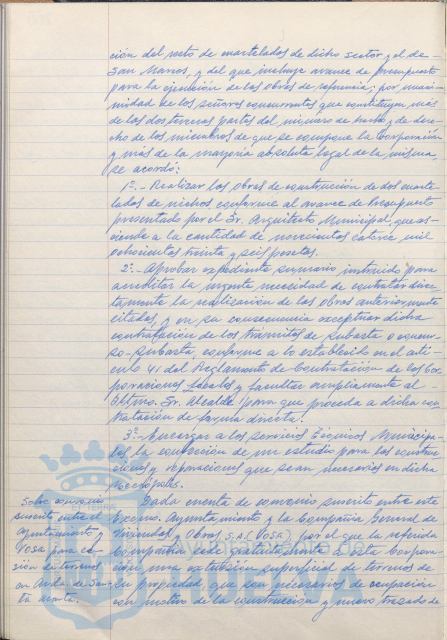 ción del resto de martelados de dicho sector y el de
San Marcos, y del que incluye avance de presupuesto
para la ejecución de las obras de referencia; por unani-
midad de los señores concurrentes que constituyen más
de las dos terceras partes del número de hecho y de dere-
cho de los miembros de que se compone la Corporación
y más de la mayoría absoluta legal de la misma
se acordó:
1º.- Realizar las obras de construcción de dos marte-
lados de nichos conforme al avance de presupuesto
presentado por el Sr. Arquitecto Municipal que as-
ciende a la cantidad de novecientos catorce mil
ochocientas treinta y seis pesetas.
2º.- Aprobar expediente sumario instruido para
acreditar la urgente necesidad de contratar direc-
tamente la realización de las obras anteriormente
citadas, y en su consecuencia exceptuar dicha
contratación de los trámites de subasta o concur-
so-subasta, conforme a lo establecido en el artí-
culo 41 del Reglamento de Contratación de las Cor-
poraciones Locales y facultar ampliamente al
Iltmo. Sr. Alcalde para que proceda a dicha con-
tratación de forma directa.
3º.- Encargar a los Servicios Técnicos Municipa-
les la confección de un estudio para las construc-
ciones y reparaciones que sean necesarias en dicha
Necrópolis.
Sobre convenio
suscrito entre el
Ayuntamiento y
VOSA para ce-
sión de terrenos
en Avda. de San-
ta Marta.
Dada cuenta de convenio suscrito entre este
Excmo. Ayuntamiento y la Compañía General de
Viviendas y Obras S.A. (VOSA) por el que la referida
Compañía cede gratuitamente a esta Corpora-
ción una extensión superficial de terrenos de
su propiedad, que son necesarios de ocupación
con motivo de la construcción y nuevo trazado de
HUELVA